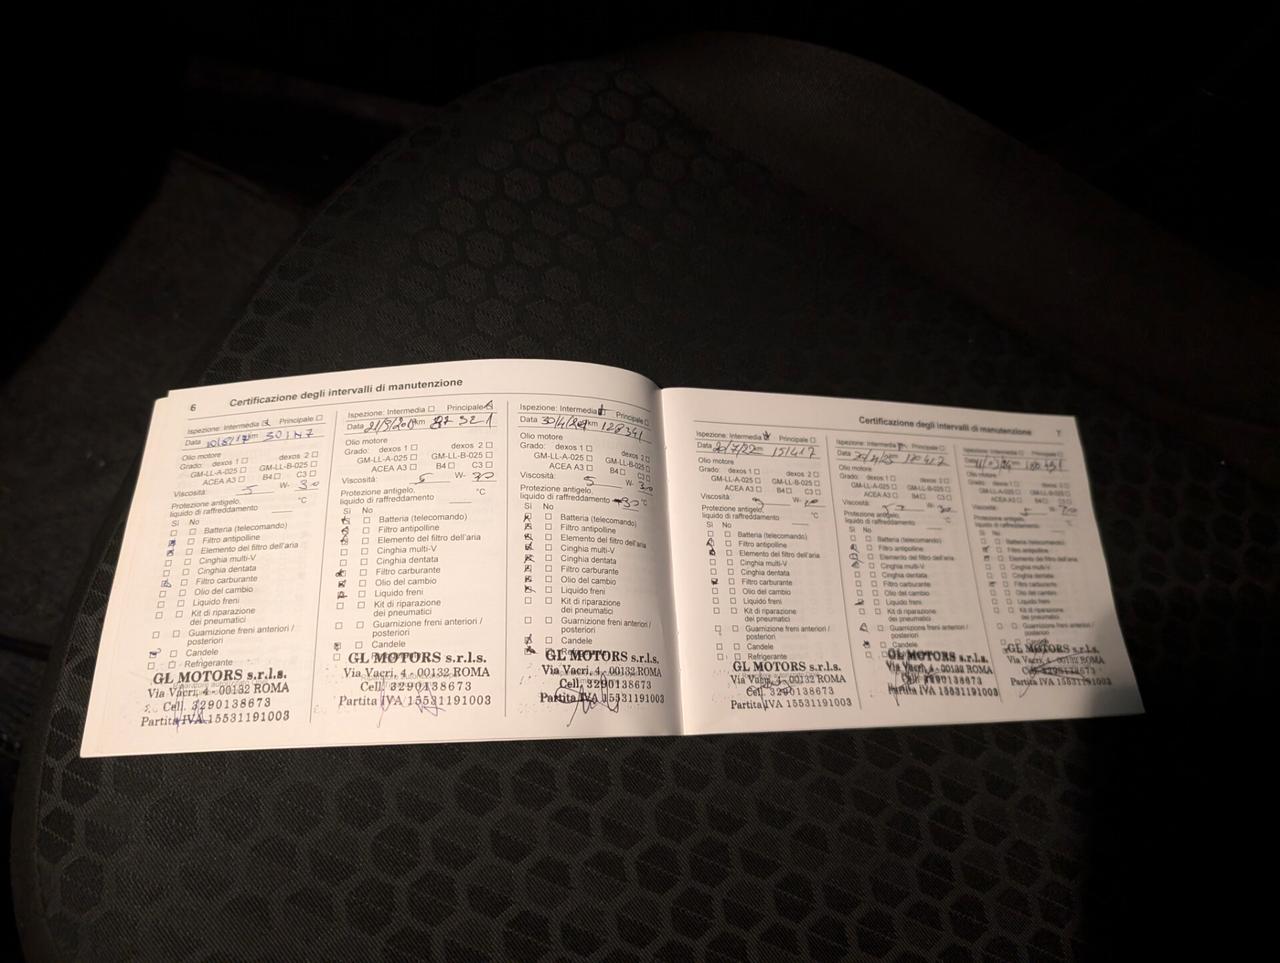 6 Certificazione degli intervalli di manutenzione
Ispezione: Intermedia Principale
Data km
Olio motore
Grado: dexos 1 dexos 2
GM-LL-A-025 GM-LL-B-025
ACEA A3 B4 C3
Viscosità: 5 W- 30
Protezione antigelo,
liquido di raffreddamento °C
Sì No
Batteria (telecomando)
Filtro antipolline
Elemento del filtro dell'aria
Cinghia multi-V
Cinghia dentata
Filtro carburante
Olio del cambio
Liquido freni
Kit di riparazione
dei pneumatici
Guarnizione freni anteriori /
posteriori
Candele
Refrigerante
GL MOTORS s.r.l.s.
Via Vacri, 4 - 00132 ROMA
Cell. 3290138673
Partita IVA 15531191003
Ispezione: Intermedia Principale
Data km
Olio motore
Grado: dexos 1 dexos 2
GM-LL-A-025 GM-LL-B-025
ACEA A3 B4 C3
Viscosità: 5 W- 30
Protezione antigelo, °C
liquido di raffreddamento
Sì No
Batteria (telecomando)
Filtro antipolline
Elemento del filtro dell'aria
Cinghia multi-V
Cinghia dentata
Filtro carburante
Olio del cambio
Liquido freni
Kit di riparazione
dei pneumatici
Guarnizione freni anteriori /
posteriori
Candele
GL MOTORS s.r.l.s.
Via Vacri, 4 - 00132 ROMA
Cell. 3290138673
Partita IVA 15531191003
Ispezione: Intermedia Principale
Data km 128341
Olio motore
Grado: dexos 1 dexos 2
GM-LL-A-025 GM-LL-B-025
ACEA A3 B4 C3
Viscosità: 5 W- 30
Protezione antigelo,
liquido di raffreddamento -30 °C
Sì No
Batteria (telecomando)
Filtro antipolline
Elemento del filtro dell'aria
Cinghia multi-V
Cinghia dentata
Filtro carburante
Olio del cambio
Liquido freni
Kit di riparazione
dei pneumatici
Guarnizione freni anteriori /
posteriori
Candele
GL MOTORS s.r.l.s.
Via Vacri, 4 - 00132 ROMA
Cell. 3290138673
Partita IVA 15531191003
Certificazione degli intervalli di manutenzione 7
Ispezione: Intermedia Principale
Data km 151417
Olio motore
Grado: dexos 1 dexos 2
GM-LL-A-025 GM-LL-B-025
ACEA A3 B4 C3
Viscosità: W-
Protezione antigelo,
liquido di raffreddamento °C
Sì No
Batteria (telecomando)
Filtro antipolline
Elemento del filtro dell'aria
Cinghia multi-V
Cinghia dentata
Filtro carburante
Olio del cambio
Liquido freni
Kit di riparazione
dei pneumatici
Guarnizione freni anteriori /
posteriori
Candele
Refrigerante
GL MOTORS s.r.l.s.
Via Vacri, 4 - 00132 ROMA
Cell. 3290138673
Partita IVA 15531191003
Ispezione: Intermedia Principale
Data km
Olio motore
Grado: dexos 1 dexos 2
GM-LL-A-025 GM-LL-B-025
ACEA A3 B4 C3
Viscosità: W-
Protezione antigelo,
liquido di raffreddamento °C
Sì No
Batteria (telecomando)
Filtro antipolline
Elemento del filtro dell'aria
Cinghia multi-V
Cinghia dentata
Filtro carburante
Olio del cambio
Liquido freni
Kit di riparazione
dei pneumatici
Guarnizione freni anteriori /
posteriori
Candele
GL MOTORS s.r.l.s.
Via Vacri, 4 - 00132 ROMA
Cell. 3290138673
Partita IVA 15531191003
Ispezione: Intermedia Principale
Data km
Olio motore
Grado: dexos 1 dexos 2
GM-LL-A-025 GM-LL-B-025
ACEA A3 B4 C3
Viscosità: W-
Protezione antigelo,
liquido di raffreddamento °C
Sì No
Batteria (telecomando)
Filtro antipolline
Elemento del filtro dell'aria
Cinghia multi-V
Cinghia dentata
Filtro carburante
Olio del cambio
Liquido freni
Kit di riparazione
dei pneumatici
Guarnizione freni anteriori /
posteriori
GL MOTORS s.r.l.s.
Via Vacri, 4 - 00132 ROMA
Partita IVA 15531191003